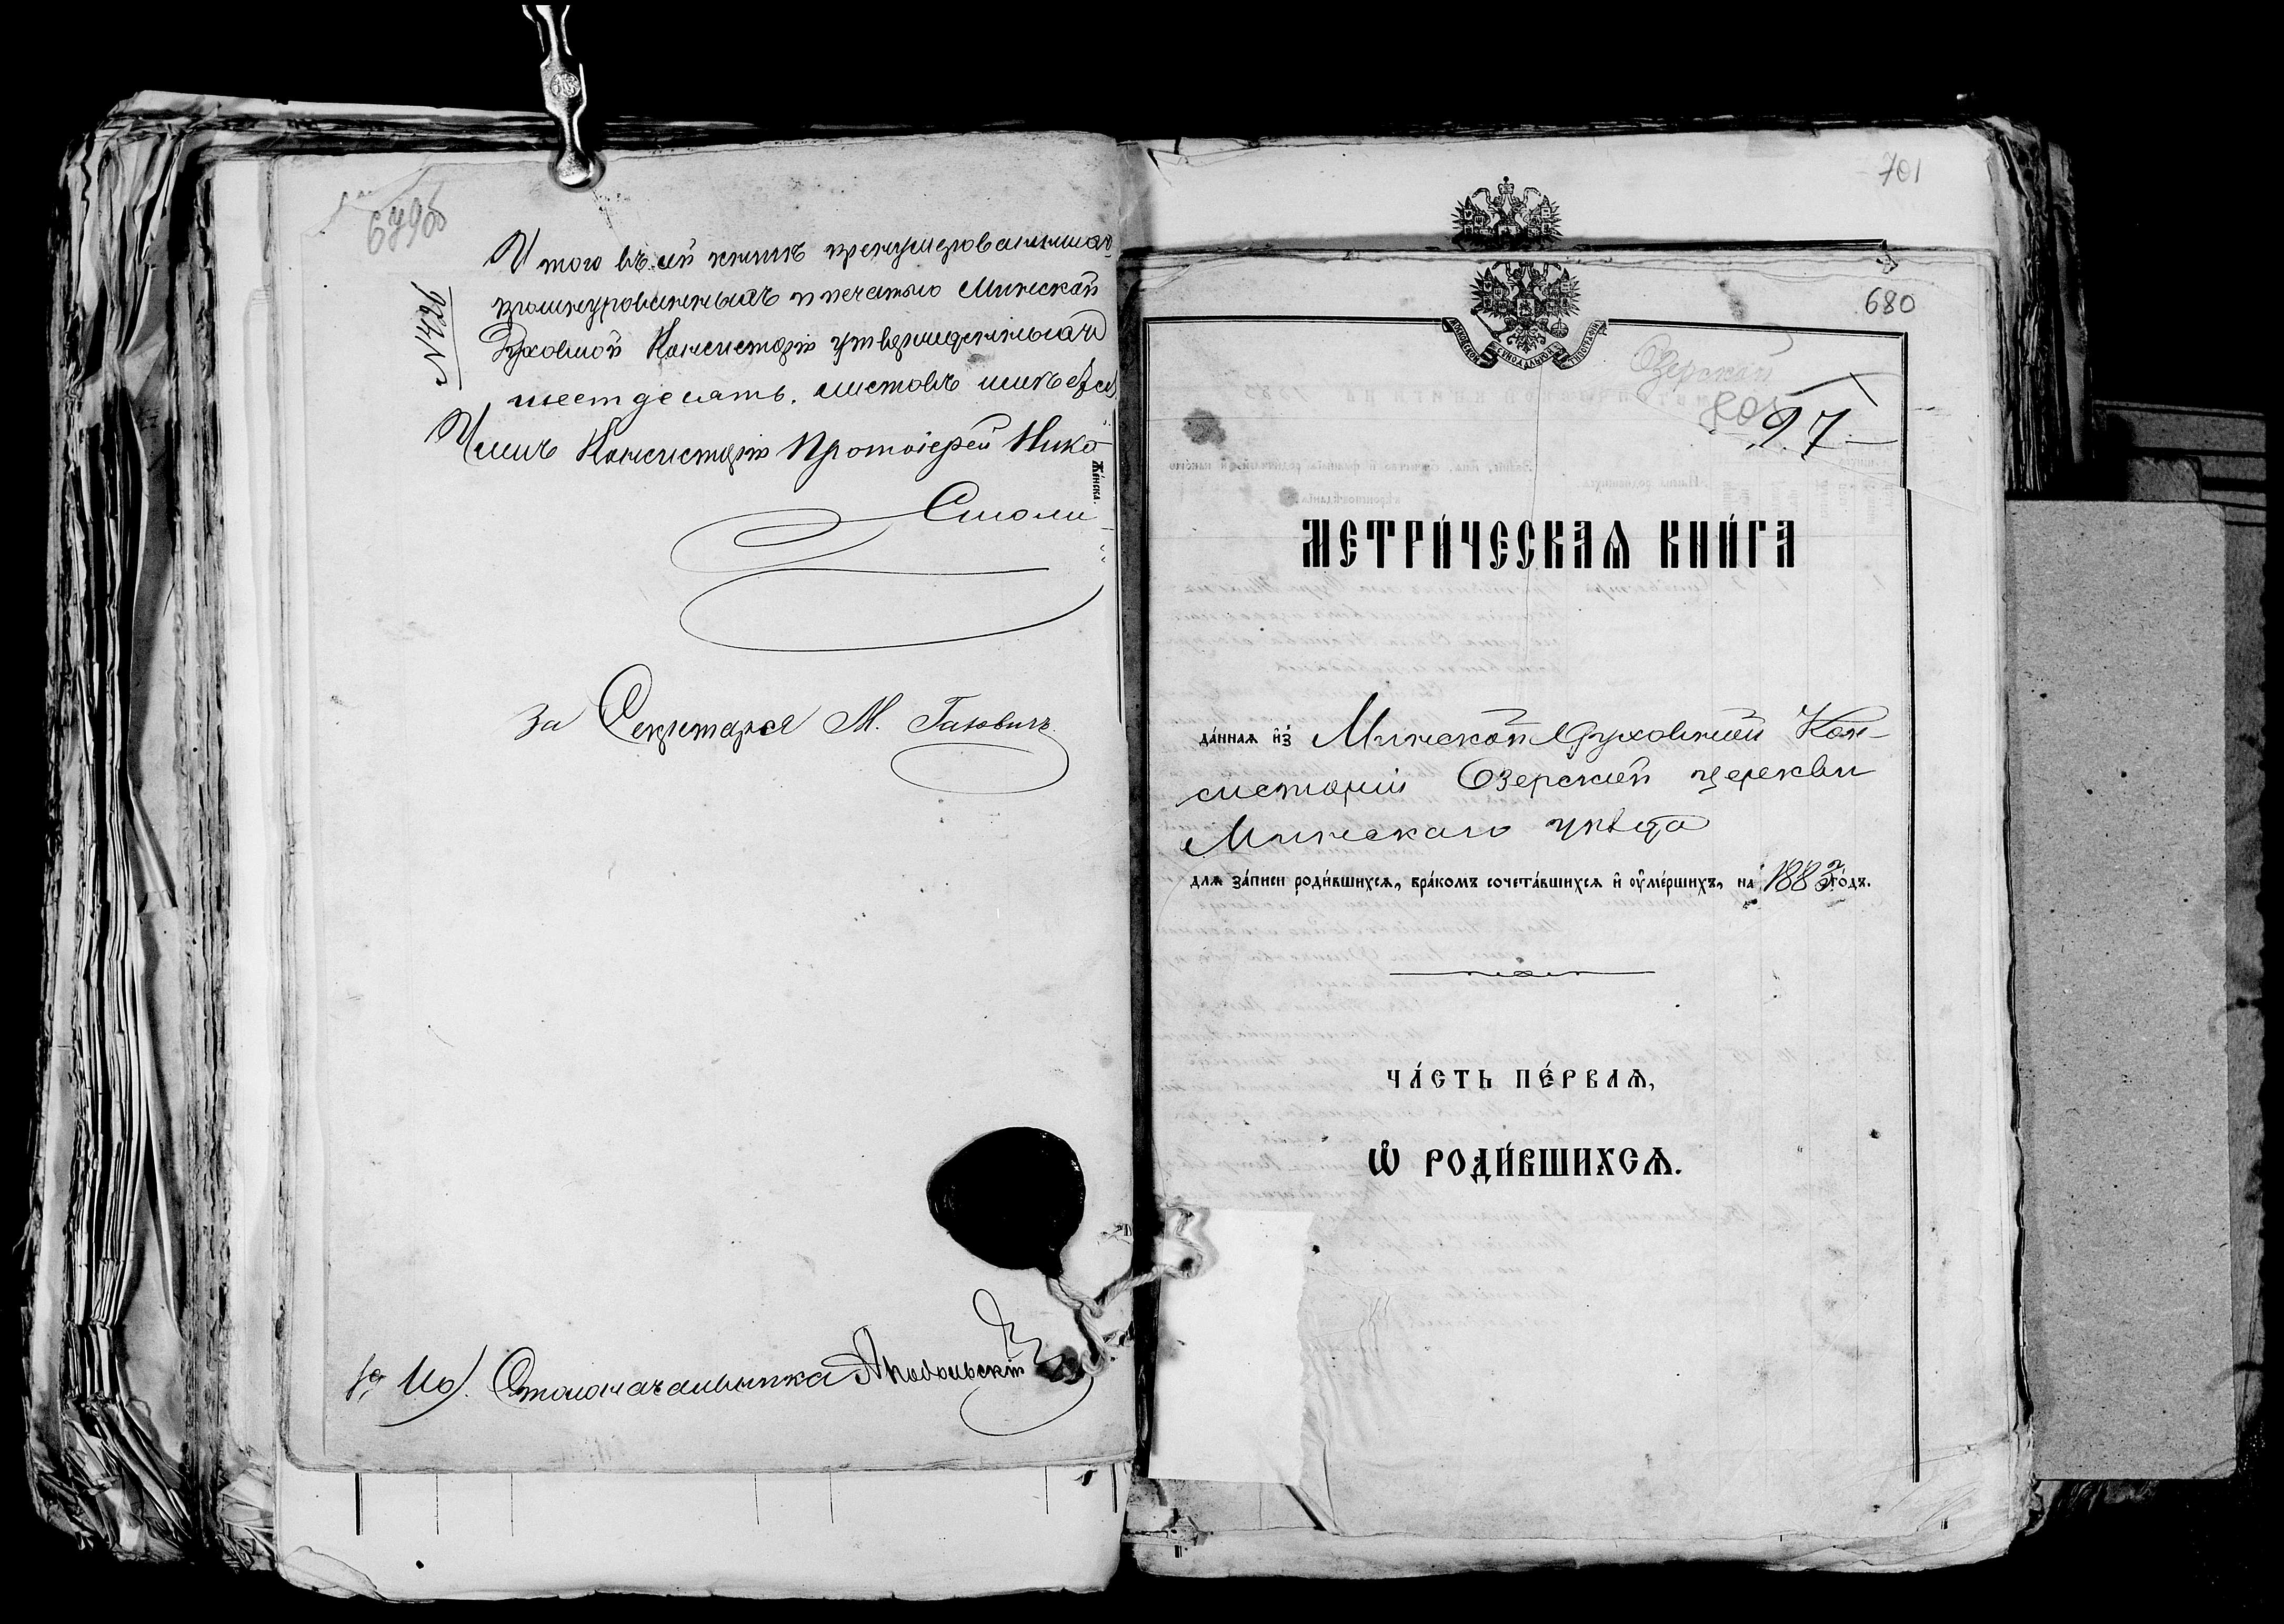 679об
№ 426
Итого въ сей книгѣ пронумерованныхъ
прошнурованныхъ и печатью Минской
Духовной Консисторіи утвержденныхъ
шестьдесятъ листовъ имѣется
Членъ Консисторіи Протоіерей Нико
Смоли
За Секретаря М.
И. д. Столоначальника
Же́нска.
701
680
МОСКОВСКОЙ СѴНОДАЛЬНОЙ ТИПОГРАФІИ
Озерской
97
МЕТРИ́ЧЕСКАѦ КНИ́ГА
да́нная и҆з̾ Минской Духовной Кон-
систоріи Озерской церкви
Минскаго уѣзда
для за́писи роди́вшихся, бра́комъ сочета́вшихся и҆ ᲂу҆ме́ршихъ, на 1883 го́дъ.
ЧА́СТЬ ПЕ́РВАѦ,
Ѡ҆ РОДИ́ВШИХСѦ.